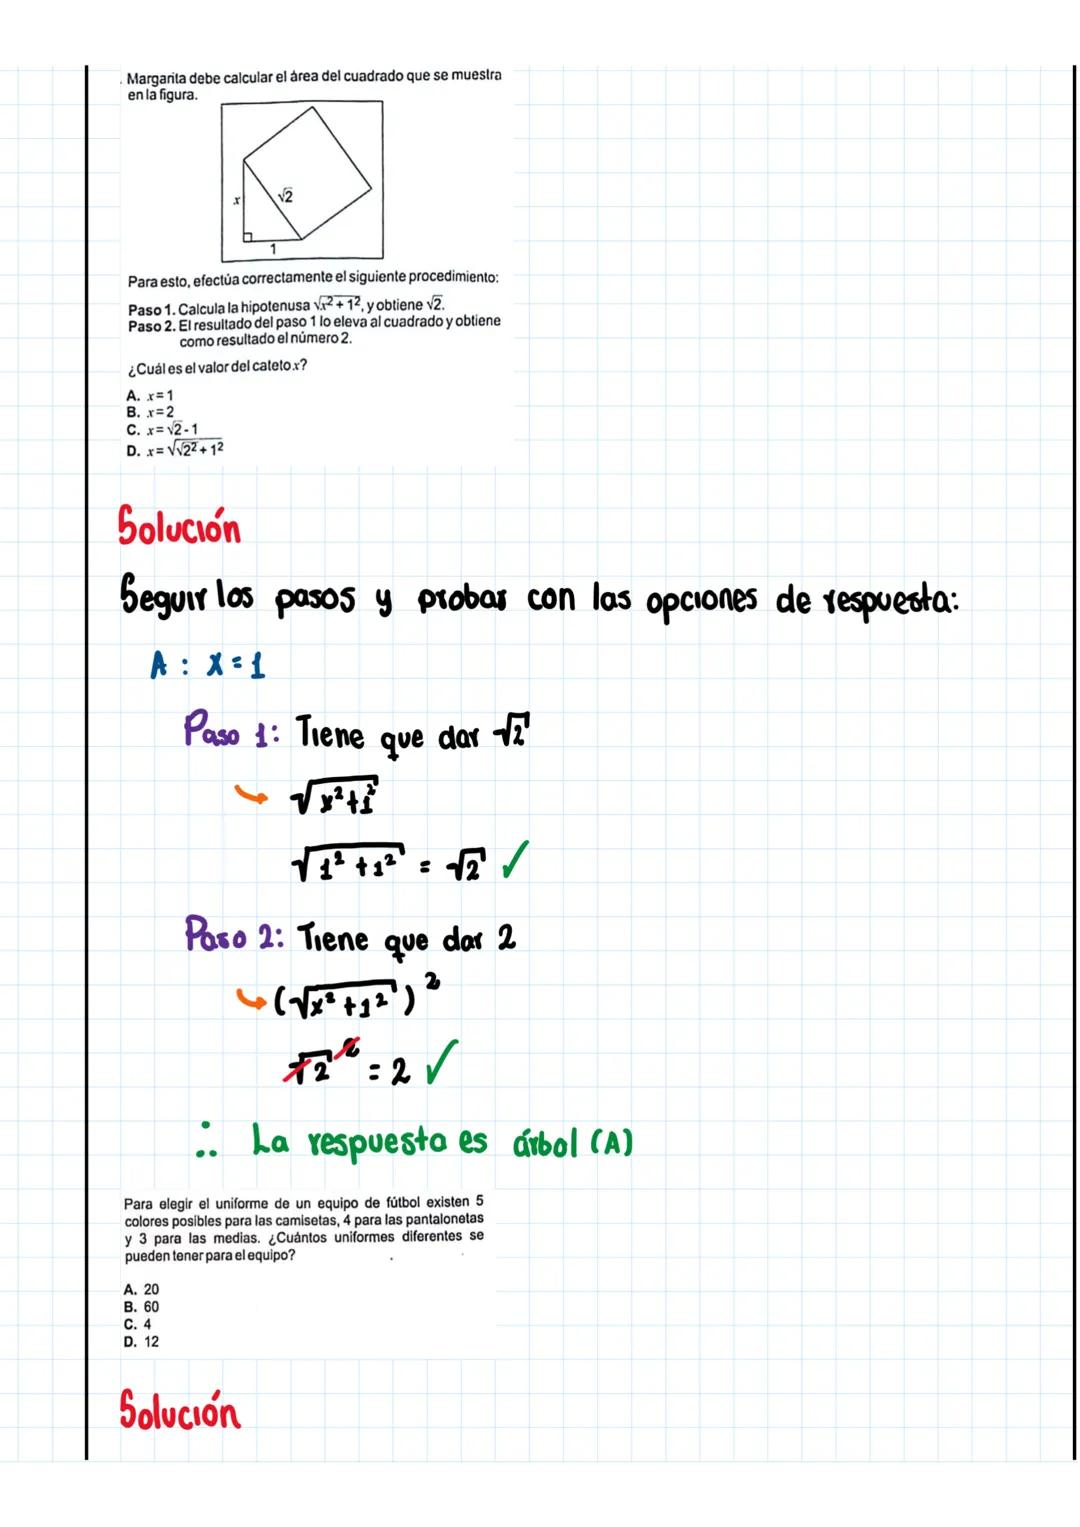 . Margarita debe calcular el área del cuadrado que se muestra
en la figura.
x
√2
1
Para esto, efectúa correctamente el siguiente procedimiento:
Paso 1. Calcula la hipotenusa √x²+1², y obtiene √2.
Paso 2. El resultado del paso 1 lo eleva al cuadrado y obtiene
como resultado el número 2.
¿Cuál es el valor del cateto x?
A. x=1
B. x=2
C. x=√2-1
D. x=√√2²+1²
Solución
Seguir los pasos y probar con las opciones de respuesta:
A : x=1
Paso 1: Tiene que dar √2
√x²+1²
√1²+1² = √2 ✓
Paso 2: Tiene que dar 2
(√x²+1²)²
√2² = 2 ✓
∴ La respuesta es árbol (A)
Para elegir el uniforme de un equipo de fútbol existen 5
colores posibles para las camisetas, 4 para las pantalonetas
y 3 para las medias. ¿Cuántos uniformes diferentes se
pueden tener para el equipo?
A. 20
B. 60
C. 4
D. 12
Solución